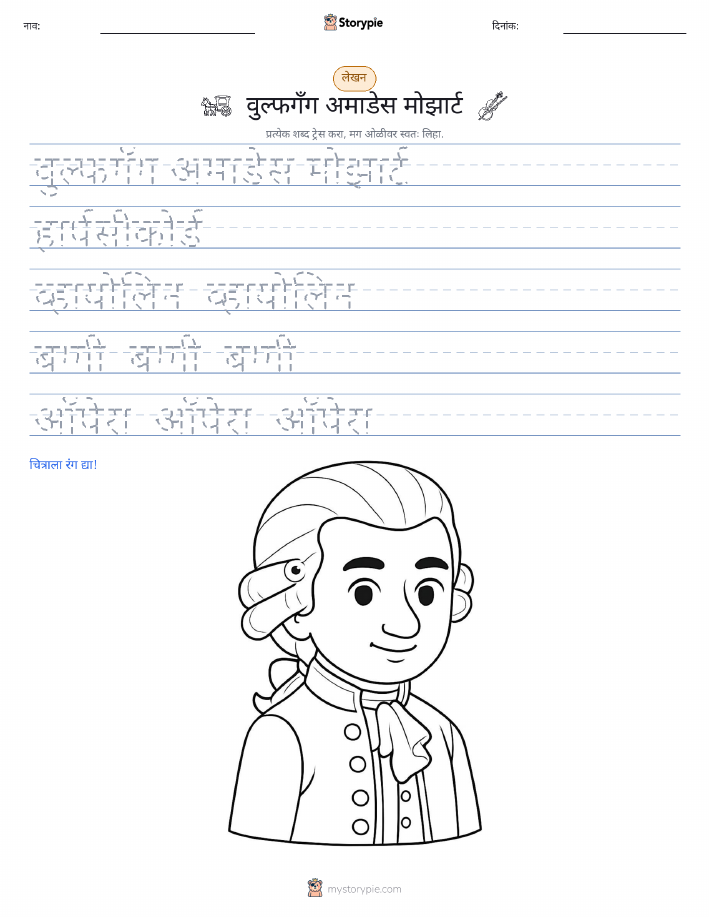 नाव:
Storypie
दिनांक:
लेखन
वुल्फगँग अमाडेस मोझार्ट
प्रत्येक शब्द ट्रेस करा, मग ओळीवर स्वतः लिहा.
वुल्फगँग अमाडेस मोझार्ट
हार्पसीकोर्ड
व्हायोलिन व्हायोलिन
बग्गी बग्गी बग्गी
ऑपेरा ऑपेरा ऑपेरा
चित्राला रंग द्या!
mystorypie.com